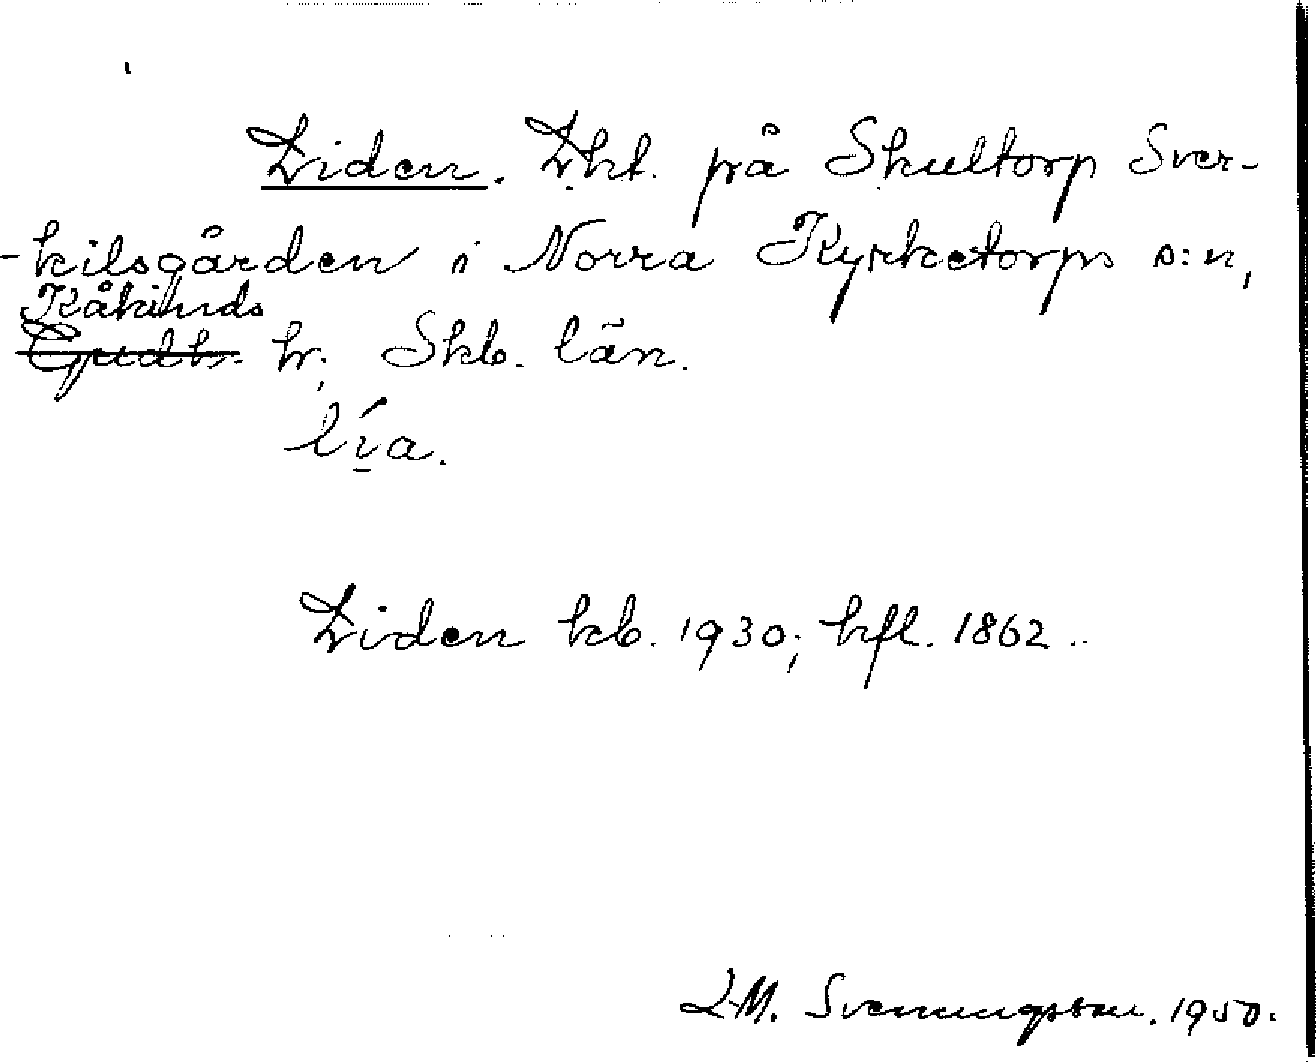 Liden. Lht. på Skultorp Sver-
-kilsgården i Norra Kyrketorps s:n,
Kåkinds
Gudh. hr. Skb. län.
lí̱a.
Liden kb. 1930; hfl. 1862.
L.M. Svenungsson. 1950.